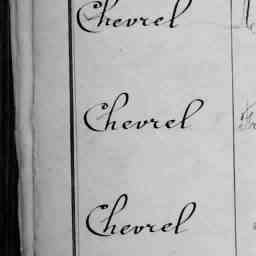 Chevrel
Chevrel
Chevrel